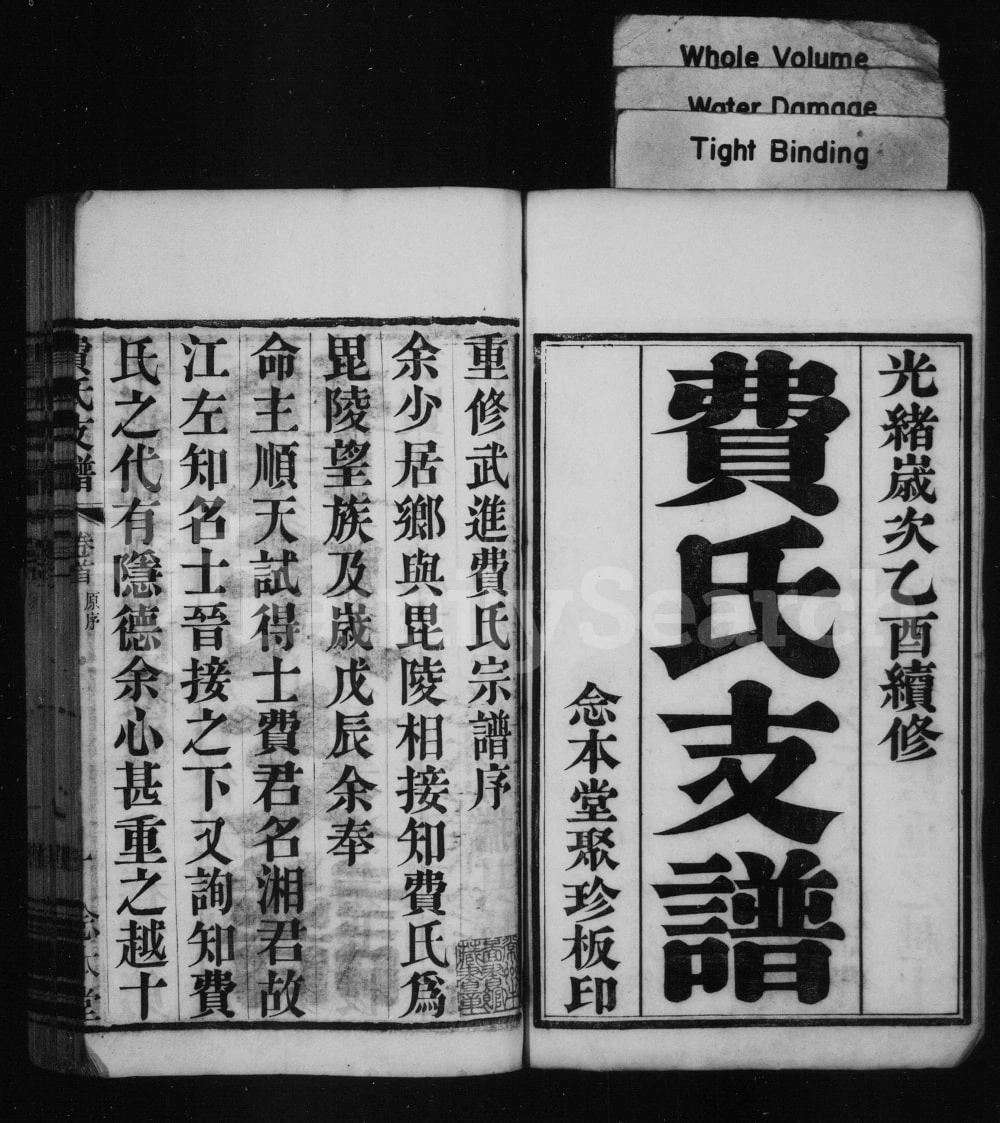 Whole Volume
Water Damage
Tight Binding
光緒歲次乙酉續修
費氏支譜
念本堂聚珍板印
重修武進費氏宗譜序
余少居鄉與毘陵相接知費氏爲
毘陵望族及歲戊辰余奉
命主順天試得士費君名湘君故
江左知名士晉接之下又詢知費
氏之代有隱德余心甚重之越十
費氏支譜
卷首
原序
一
FamilySearch